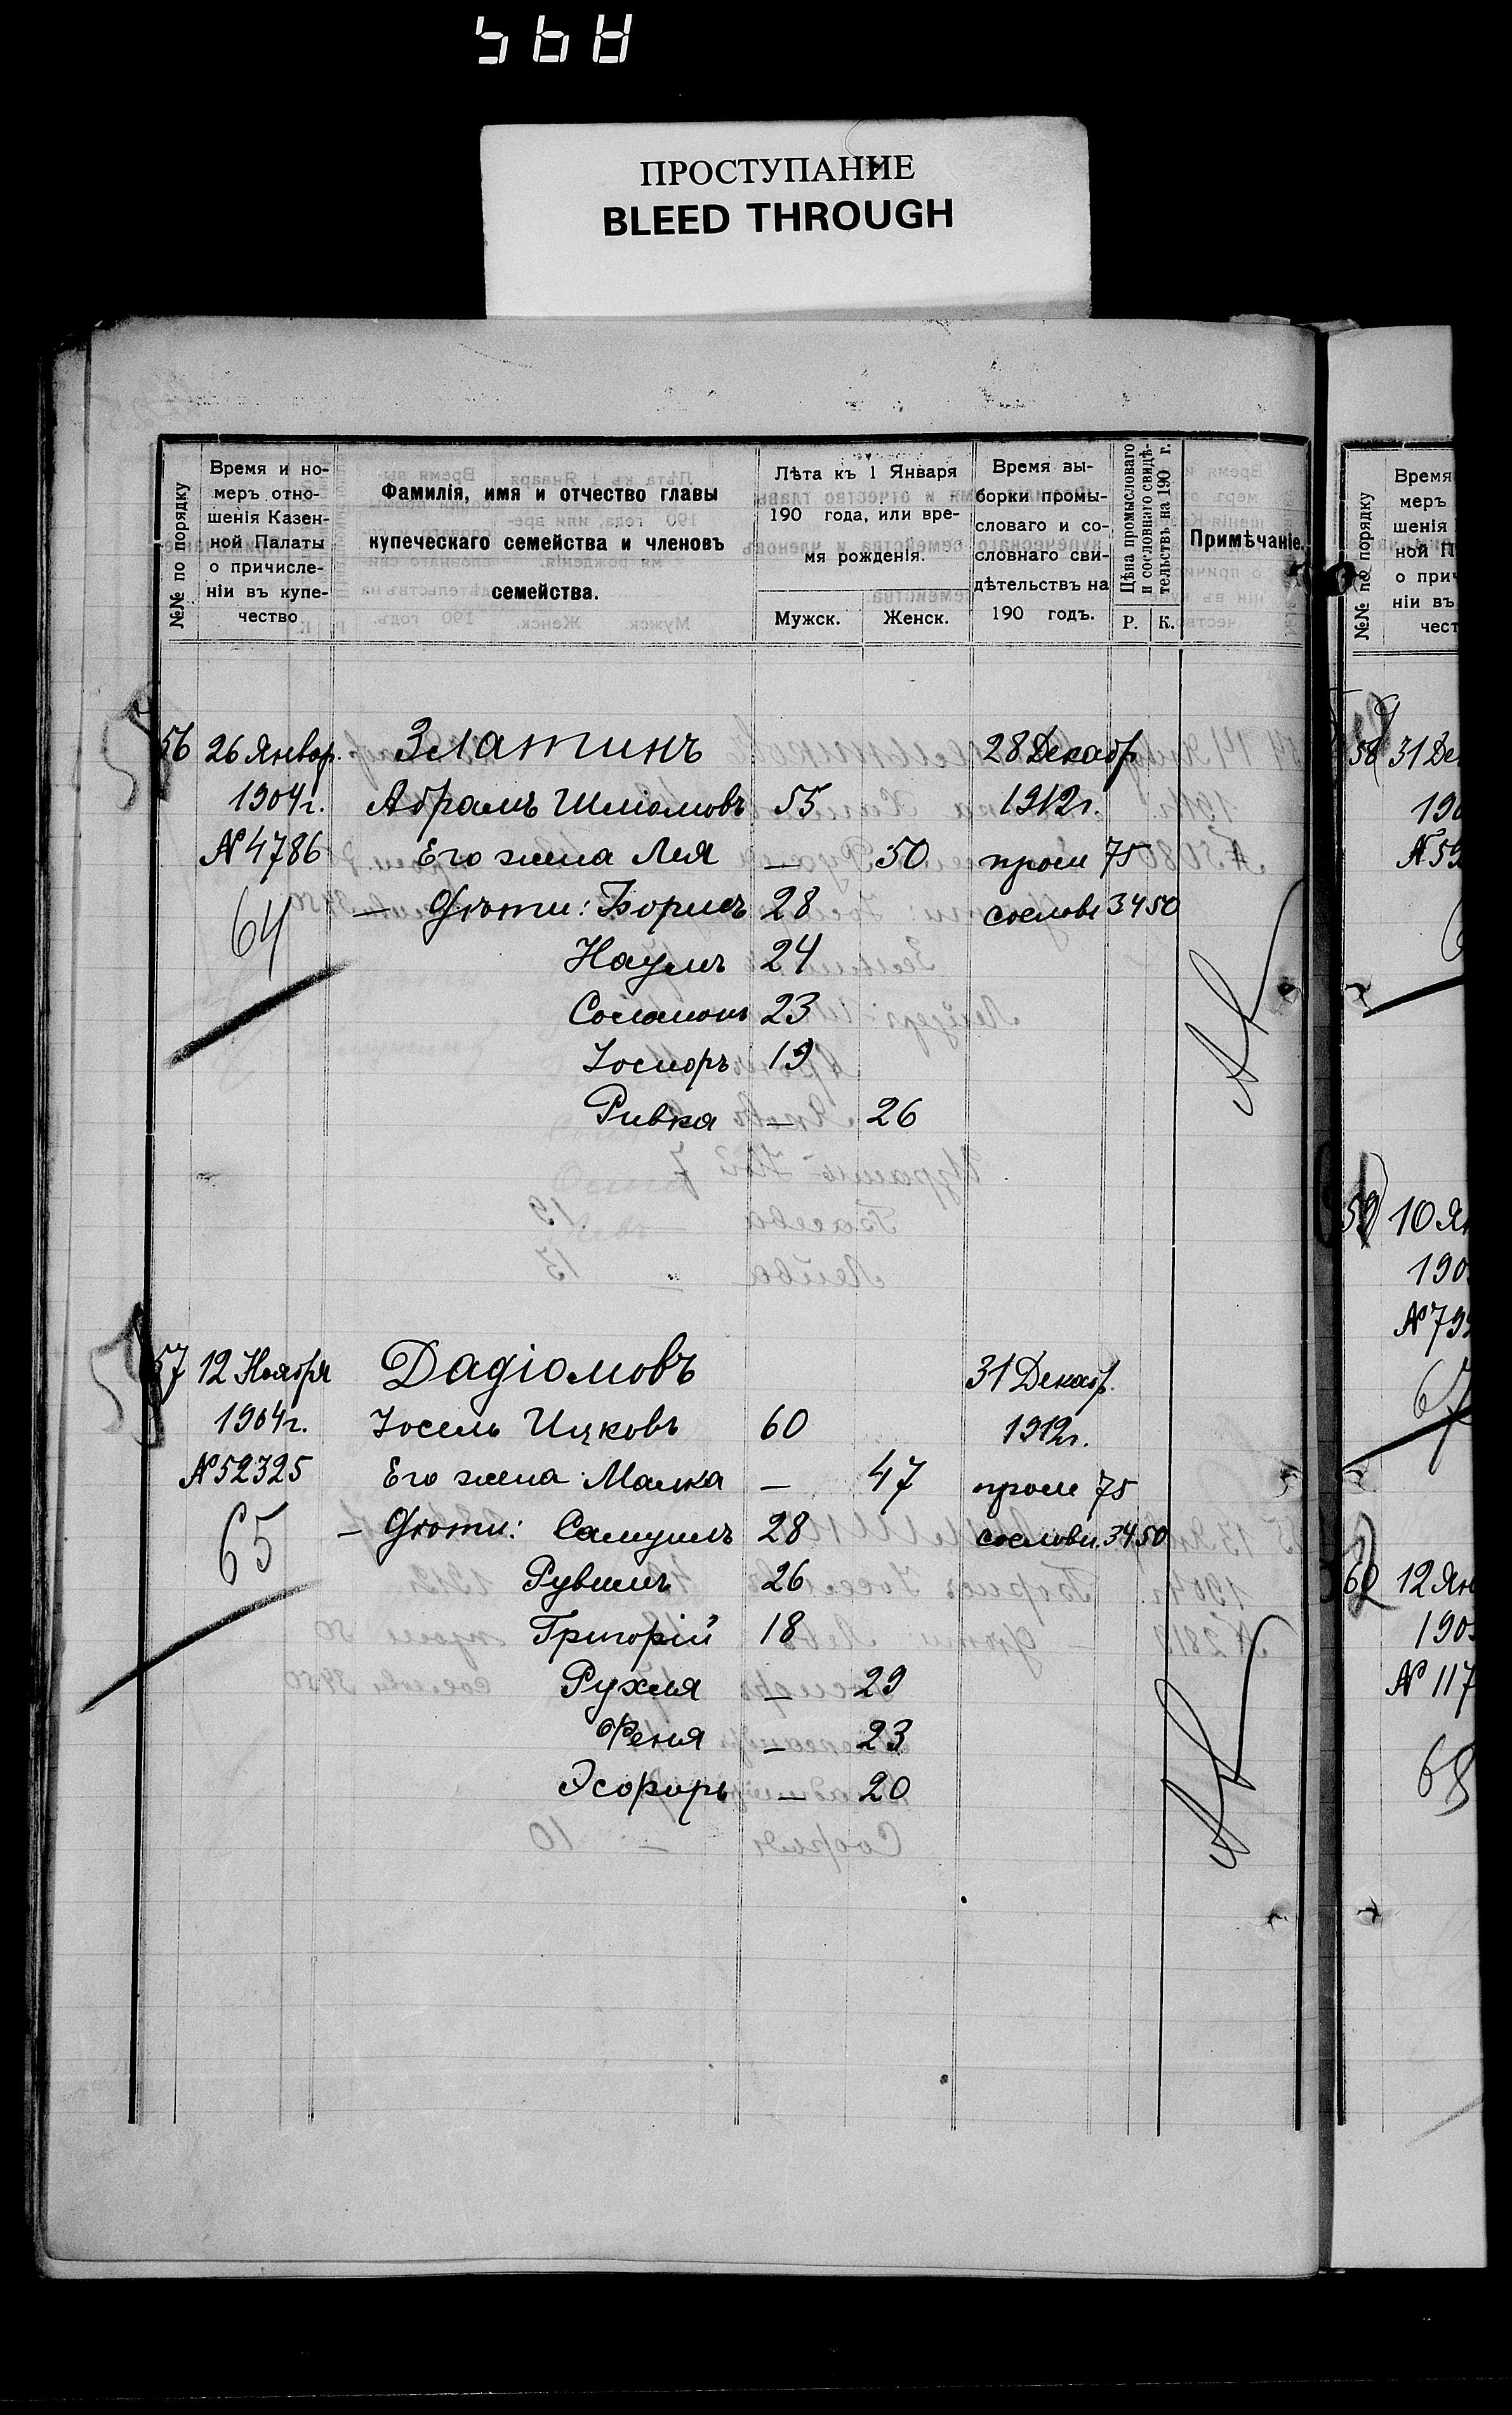 ПРОСТУПАНИЕ
BLEED THROUGH
№№ по порядку
Время и но-
меръ отно-
шенія Казен-
ной Палаты
о причисле-
ніи въ купе-
чество
Фамилія, имя и отчество главы
купеческаго семейства и членовъ
семейства.
Лѣта къ 1 Января
190 года, или вре-
мя рожденія.
Мужск. Женск.
Время вы-
борки промы-
словаго и со-
словнаго сви-
дѣтельствъ на
190 годъ.
Цѣна промысловаго
и сословнаго свидѣ-
тельствъ на 190 г.
Р. К.
Примѣчаніе.
56 26 Январ. Златинъ 28 Декабр.
1904г. Абрамъ Шліомовъ 55 1912г.
№4786 Его жена Лея — 50 пром 75
64 — Дѣти: Борисъ 28 сословн 34 50
Наумъ 24
Соломонъ 23
Іосифъ 19
Ривка — 26
57 12 Ноября Дадіомовъ 31 Декабр.
1904г. Іосель Ицковъ 60 1912г.
№52325 Его жена Малка — 47 пром 75
65 — Дѣти: Самуилъ 28 сословн. 34 50
Рувимъ 26
Григорій 18
Рухля — 29
Феня — 23
Эсфирь — 20
№№ по порядку
Время
меръ
шенія
ной П
о прич
ніи въ
чест
58 31 Де
190
№ 59
59 10 Ян
190
№ 79
67
60 12 Ян
190
№ 117
68